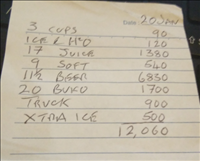 Date 20 JAN
3 CUPS 90
ICE & H2O 120
17 JUICE 1380
9 SOFT 540
11½ BEER 6830
20 BUKO 1700
TRUCK 900
XTRA ICE 500
12,060